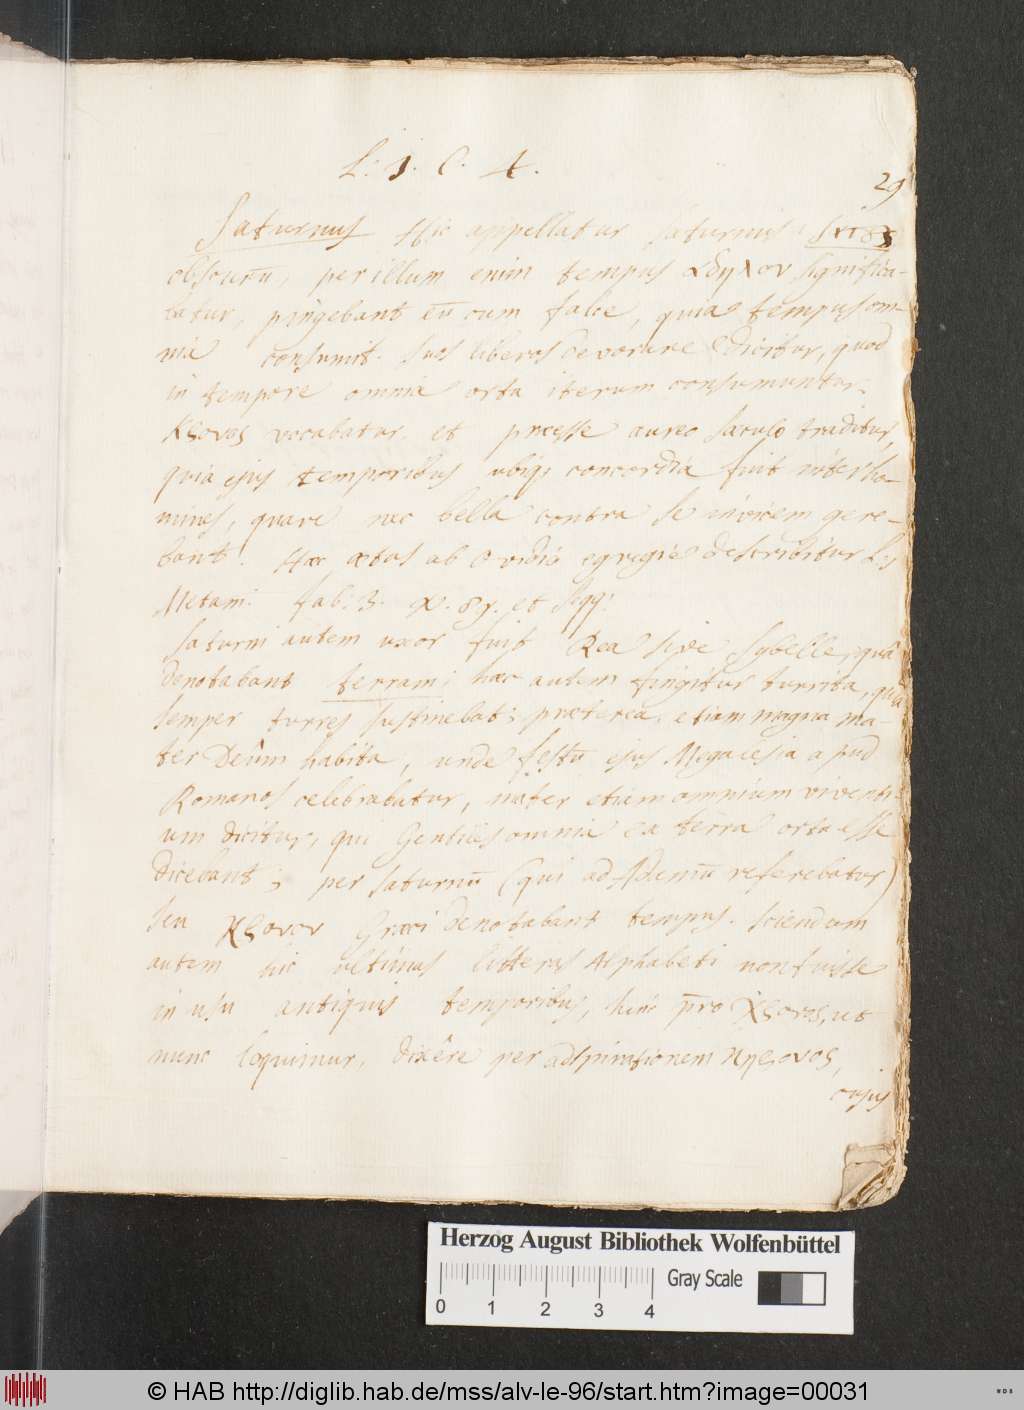 L: 1. C. 4.
29
Saturnus Hic appellatur Saturnus
obscurū, per illum enim tempus ἄδηλον significa-
batur, pingebant eū cum falce, quia tempus om-
nia consumit. suos liberos devorare dicitur, quod
in tempore omnia orta iterum consumuntur.
Κρονος vocabatur et præesse aureo sæculo traditur,
quia ejus temporibus ubiq; concordia fuit inter ho-
mines, quare nec bella contra se invicem gere-
bant. Hæc ætas ab Ovidio egregiè describitur L: 1
Metam: fab: 3. V. 89. et seqq:
Saturni autem uxor fuit Rea sive Sybelle, quâ
denotabant terram; hæc autem fingitur turrita, quia
semper turres sustinebat; præterea etiam magna ma-
ter Deûm habita, unde festū ejus Megalesia apud
Romanos celebrabatur, mater etiam omnium viventi-
um dicitur, qui Gentiles omnia ea terra orta esse
dicebant; per Saturnū (qui ad Ademū referebatur)
seu Χρονον Græci denotabant tempus. Sciendum
autem hic ultimas litteras Alphabeti non fuisse
in usu antiquis temporibus, hinc pro Χρονος, ut
nunc loquimur, dixêre per adspirationem Κηρονος,
cujus
Herzog August Bibliothek Wolfenbüttel
Gray Scale
0 1 2 3 4
© HAB http://diglib.hab.de/mss/alv-le-96/start.htm?image=00031